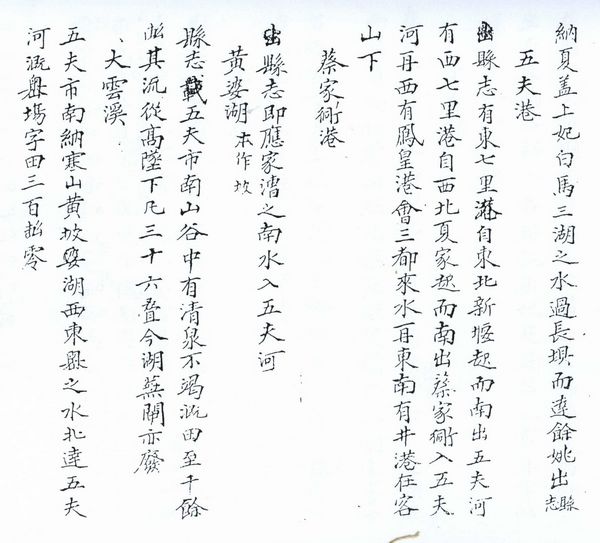 納夏盖上妃白馬三湖之水過長壩而達餘姚出縣志
五夫港
縣志有東七里港自東北新堰起而南出五夫河
有西七里港自西北夏家起而南出蔡家衖入五夫
河再西有鳳皇港會三都來水再東南有井港在客
山下
蔡家衖港
出縣志即應家漕之南水入五夫河
黃婆湖本作坡
縣志載五夫市南山谷中有清泉不竭溉田至千餘
畝其流從高墜下凡三十六叠今湖蕪閘亦廢
大雲溪
五夫市南納寒山黃坡婆湖西東縣之水北達五夫
河溉塲字田三百畝零